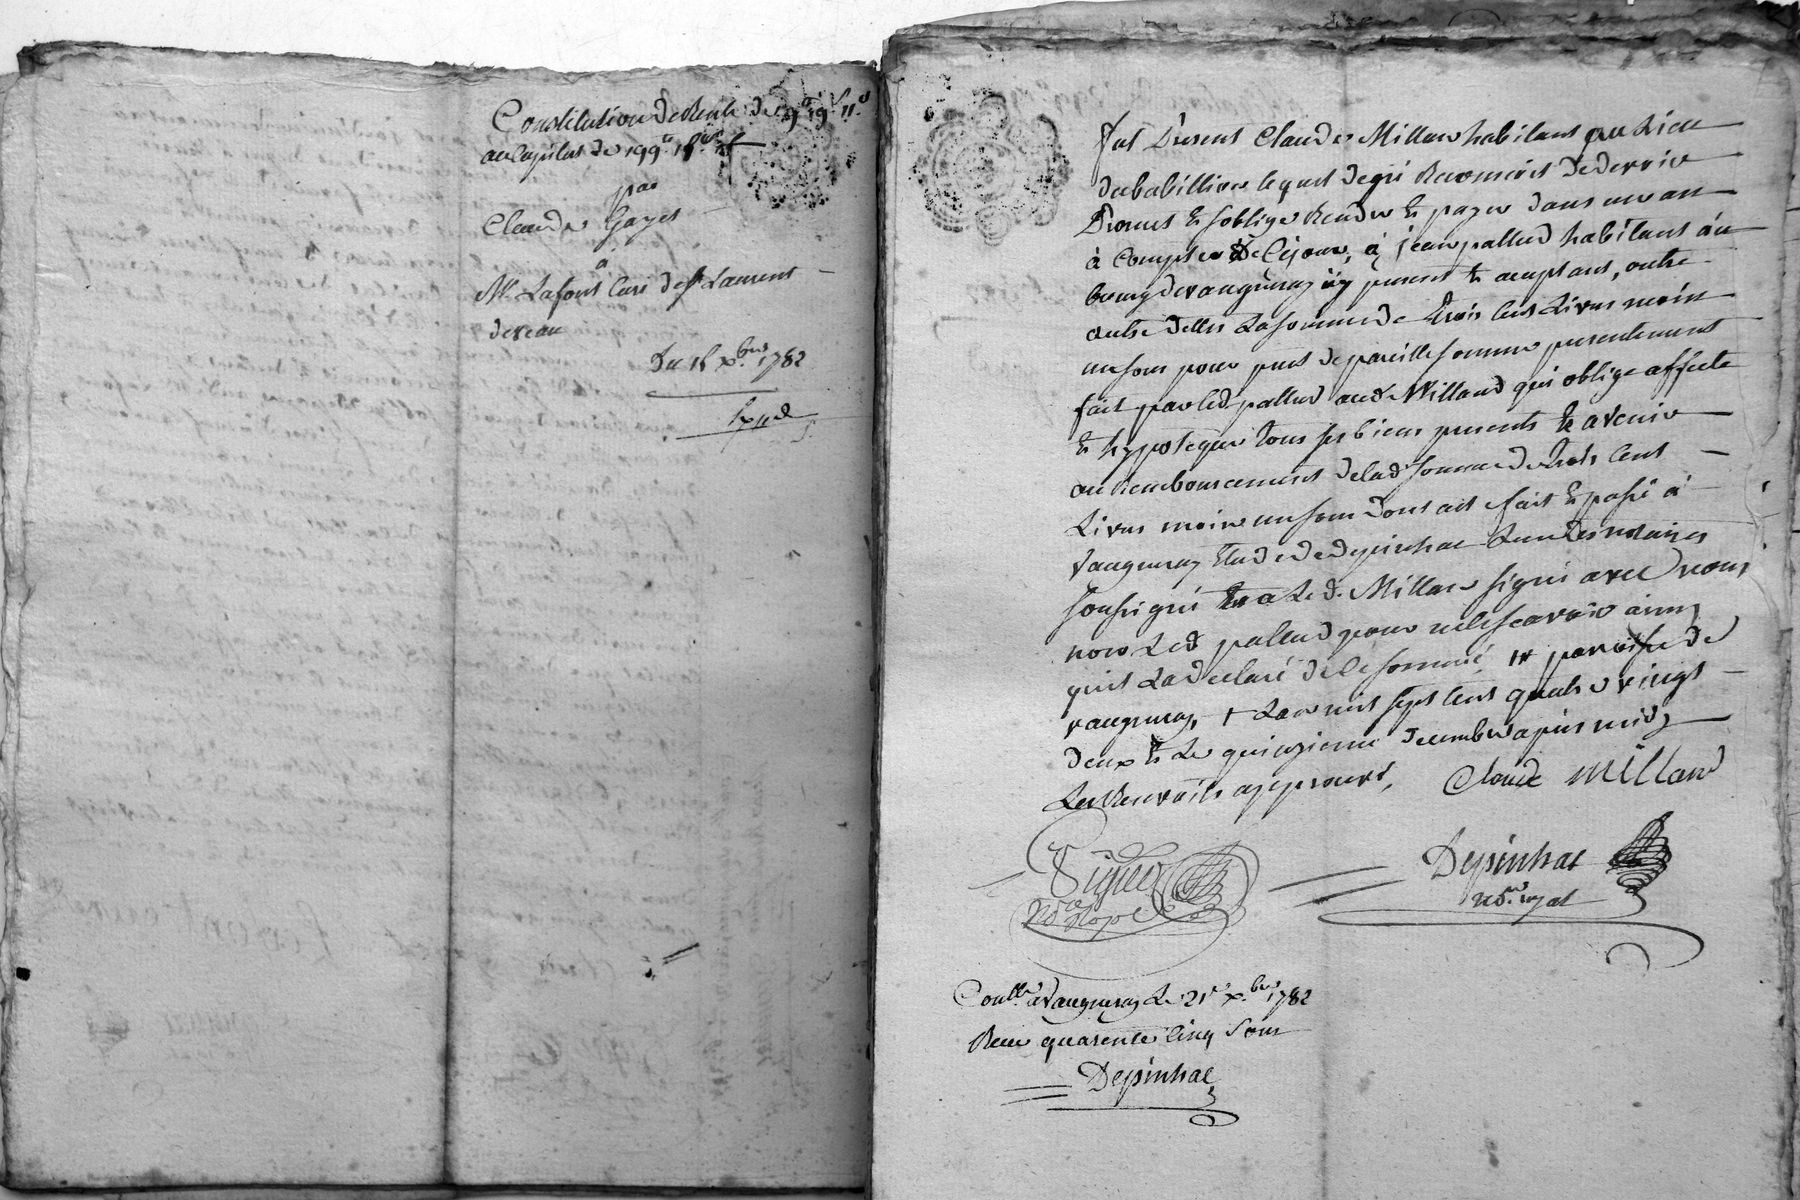 Constitution de Rente de 9# 19s 11d
au Capital de 199# 18s
par
Claude Gayet
à
Mr. Lafont Curé de St Laurent
deveau
Du 15 Xbre 1782
Expd
fut Present Claude Millan habitant au Lieu
lequel de gré
Promet & soblige Rendre & payer dans un an
à Compter de Cejour, à jean pallud habitant au
bourg devaugneray present & acceptant, outre
La somme de trois Cent Livres moin
un sou pour pret depareille somme presentement
fait par led pallud aud Milland qui oblige affecte
& hypoteque tous ses biens presents & avenir
au Remboursement delad somme de trois Cent
Livres moin un sou dont act fait & passé à
vaugneray Etude dedepinhac Lun des notaires
soussigné & a Led. Millan signé avec nous
non Led pallud pour nele scavoir ainsy
quil La declaré dece sommé, paroisse de
vaugneray, + Lan mil sept Cent quatre vingt
deux & Le quinzieme decembre apres midy
Les Renvoits approuvés, Claude Millan
Depinhac
Nore royal
Conllé à vaugneray Le 21e Xbre 1782
Recu quarente Cinq sous
Depinhac